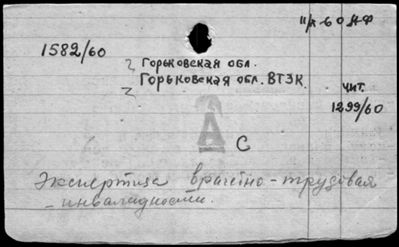 11/х-60 АФ
1582/60
Горьковская обл.
Горьковская обл. ВТЭК.
чит.
1299/60
С
Экспертиза врачебно-трудовая
- инвалидности.